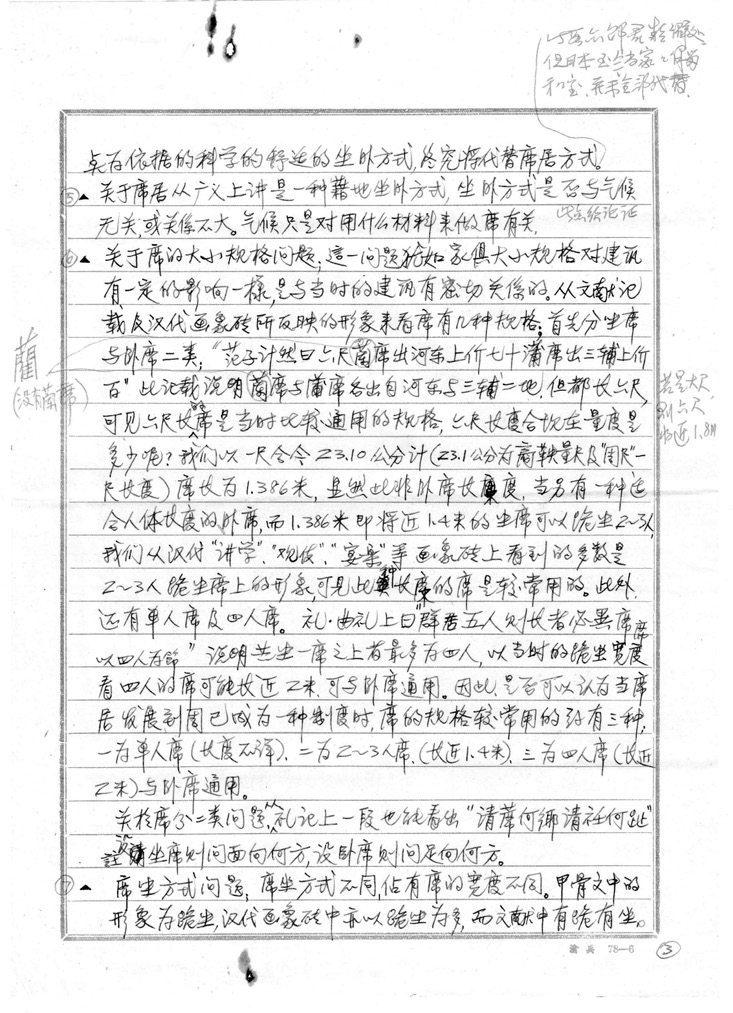 但日本
代替
真有依据的科学的舒适的坐卧方式,终究将代替席居方式。
⑤▲ 关于席居从广义上讲是一种藉地坐卧方式,坐卧方式是否与气候
无关或关係不大。气候只是对用什么材料来做席有关。
论证
⑥▲ 关于席的大小规格问题;這一问题犹如家俱大小规格对建筑
有一定的影响一樣,是与当时的建筑有密切关係的。从文献记
载及汉代画象砖所反映的形象来看席有几种规格;首先分坐席
与卧席二类,“范子计然曰六尺蔺席出河东上价七十蒲席出三辅上价
百”此记载说明蔺席与蒲席各出自河东与三辅二地,但都长六尺,
藺
(没有蔺席)
可见六尺长席是当时比较通用的规格,六尺长度合现在量度是
若是大尺
则六尺
将近1.8m
多少呢?我们以一尺合今23.10公分计(23.1公分为商鞅量尺及“周尺”一
尺长度)席长为1.386米,显然此非卧席长度,当另有一种适
合人体长度的卧席,而1.386米即将近1.4米的坐席可以跪坐2~3人
我们从汉代“讲学”、“观伎”、“宴乐”等画象砖上看到的多数是
2~3人跪坐席上的形象,可见此种长度的席是较常用的。此外,
还有单人席及四人席。礼·曲礼上曰“群居五人则长者必異席席
以四人为節”说明共坐一席之上者最多为四人,以当时的跪坐宽度
看四人的席可能长近2米,可与卧席通用。因此,是否可以认为当席
居发展到周已成为一种制度时,席的规格较常用的约有三种,
一为单人席(长度不详).二为2~3人席.(长近1.4米).三为四人席(长近
2米)与卧席通用。
关於席分二类问题,从礼记上一段也能看出“请席何鄉请衽何趾”
註设坐席则问面向何方,设卧席则问足向何方。
⑦▲ 席坐方式问题,席坐方式不同,佔有席的宽度不同。甲骨文中的
形象为跪坐,汉代画象砖中亦以跪坐为多,而文献中有跪有坐。
渝兵 78—6
③